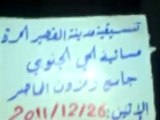 تنسيقية مدينة القصير الحرة
مسائية الحي الجنوبي
جامع زيدون المحاصر
الإثنين: 2011/12/26